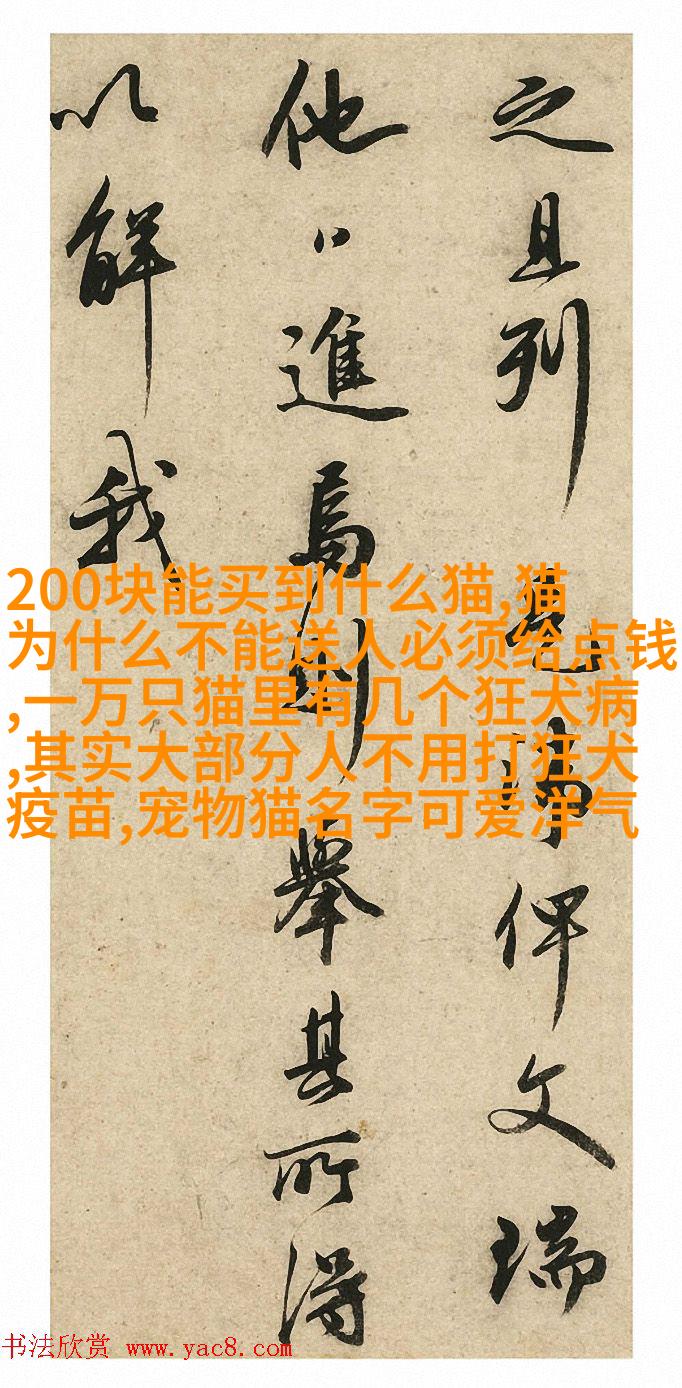 之且列俾文瑞
他日進焉則舉其所得
以解我
200块能买到什么猫,猫
为什么不能送人必须给点钱
,一万只猫里有几个狂犬病
,其实大部分人不用打狂犬
疫苗,宠物猫名字可爱洋气
书法欣赏 www.yac8.com